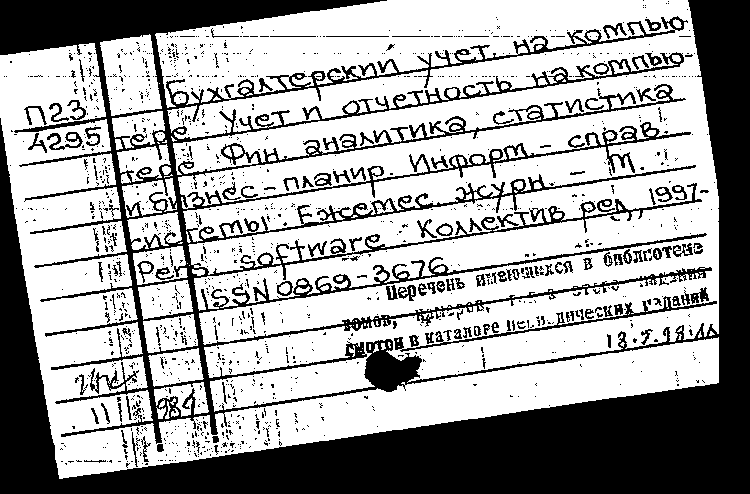 Бухгалтерский учет. на компью
П23 тере. Учет и отчетность на компью-
4295 тере. Фин. аналитика, статистика
и бизнес-планир. Информ.- справ.
системы: Ежемес. журн. - М. :
Pers. software : Коллектив ред., 1997-
ISSN 0869-3676.
Перечень имеющихся в библиотеке
томов, номеров, т.п. этого издания
смотри в каталоге периодических изданий
18.5.98
11 984